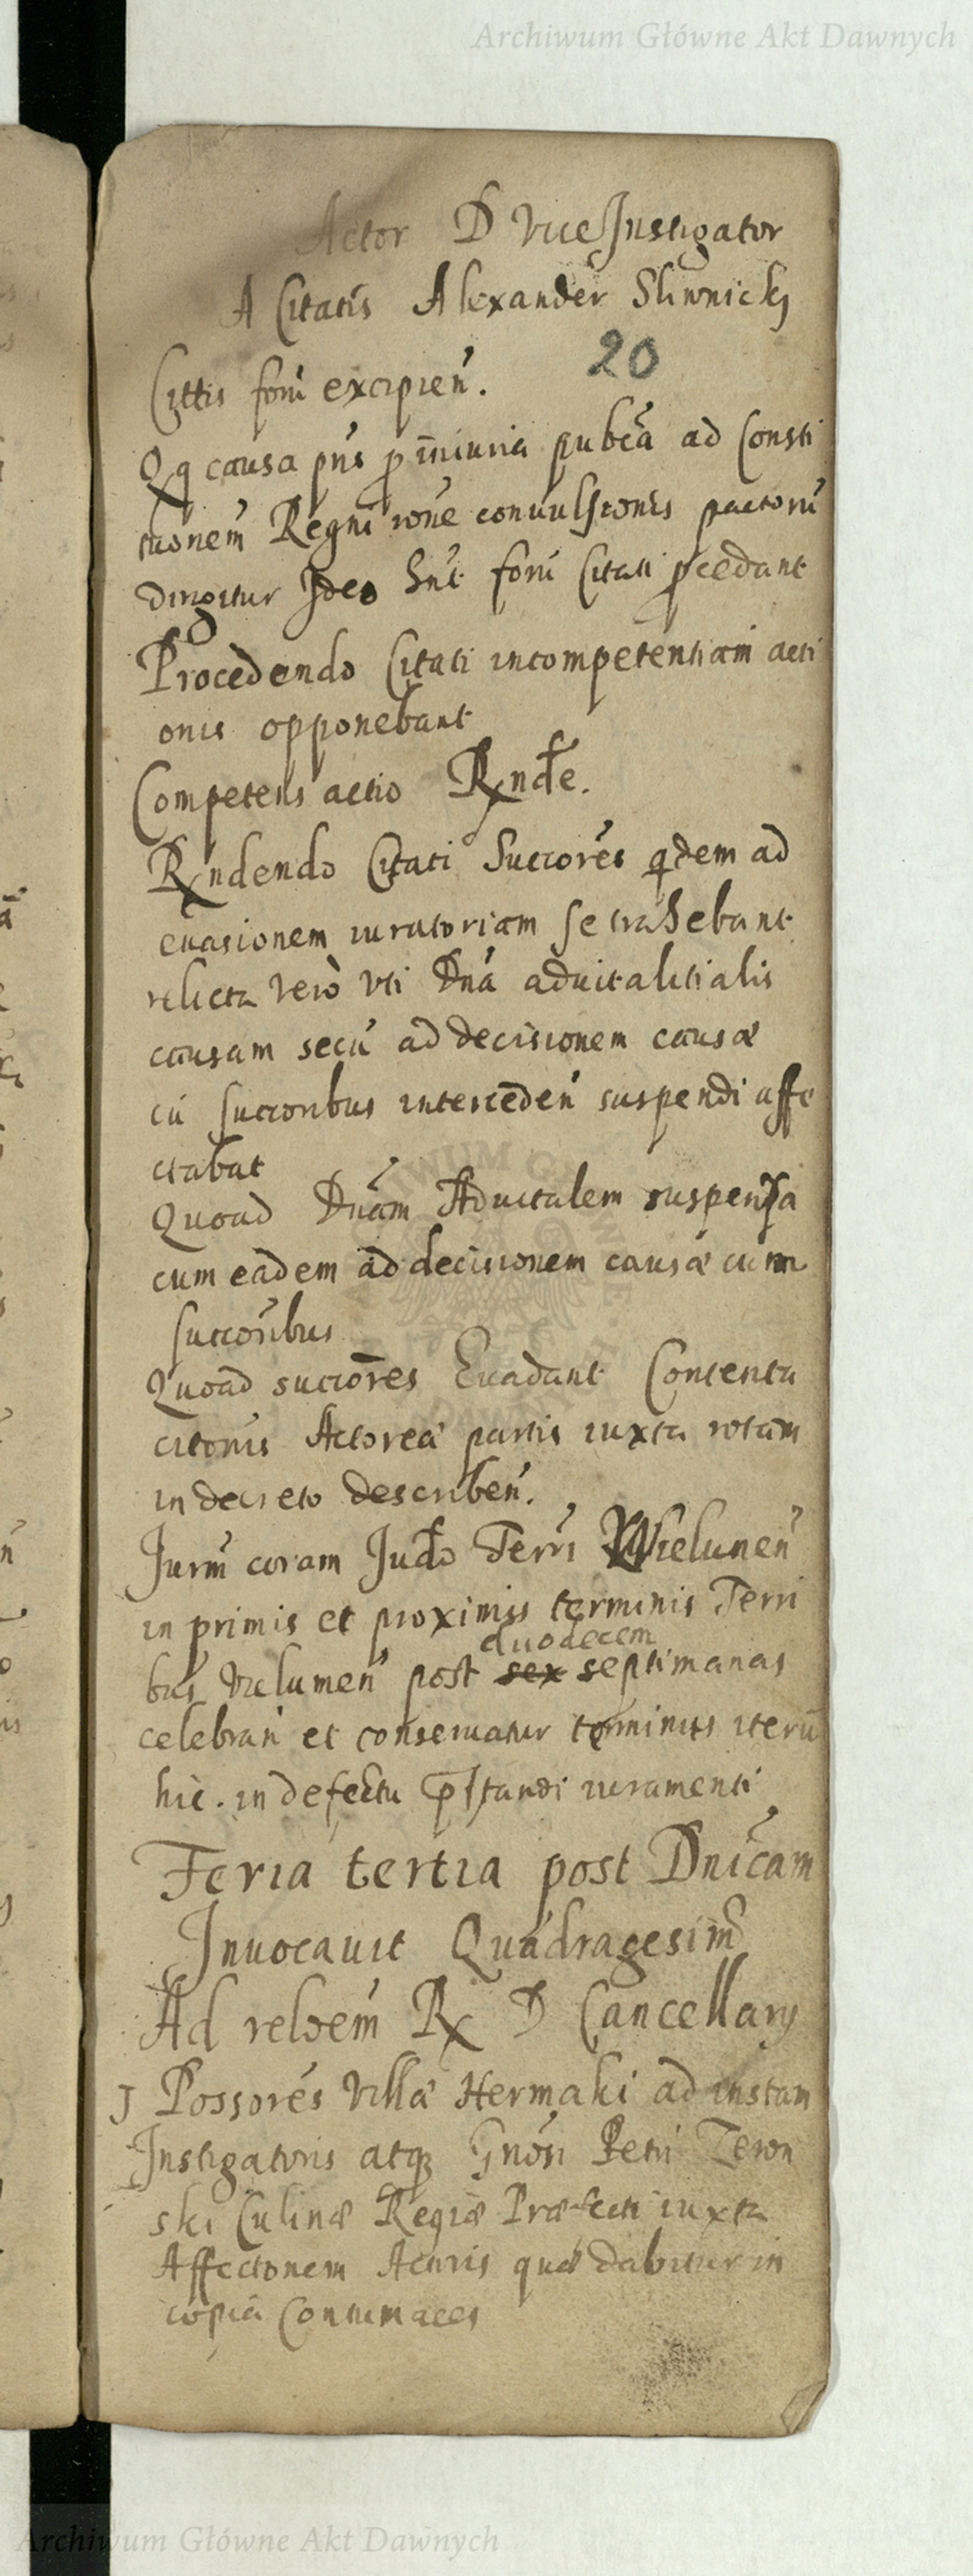 Archiwum Główne Akt Dawnych
Actor D Vice Instigator
A Citatis Alexander Sliwnicky
20
Cittis fori excipien.
Qq causa pns p iniuria pubca ad Consti
tionem Regni rone conuulsionis pactoru
dirigitur Ideo hnt fori Citati pcedant
Procedendo Citati incompetentiam acti
onis opponebant
Competens actio Rxnde.
Rxndendo Citati Succores qdem ad
euasionem iuratoriam se trahebant
relicta vero vti Dna aduitalitialis
causam secu ad decisionem causæ
cu succoribus interceden suspendi affe
ctabat
Quoad Dnam Aduitalem suspensa
cum eadem ad decisionem causæ cum
succoribus
Quoad succores Euadant Contenta
citonis Actorea partis iuxta rotam
in decreto describen.
Jurm coram Judo Terri Wielunen
in primis et proximis terminis Terri
duodecem
bus Vielunen post sex septimanas
celebran et conseruatur terminus iteru
hic. in defectu pstandi iuramenti
Feria tertia post Dnicam
Inuocauit Quadragesim
Ad reloem Rx D Cancellary
J Possores Villa Hermaki ad instam
Instigatoris atq Gnosi Petri Zeron
ski Culinæ Regiæ Præfecti iuxta
Affectonem Actoris quæ dabitur in
copia Contumaces
Archiwum Główne Akt Dawnych